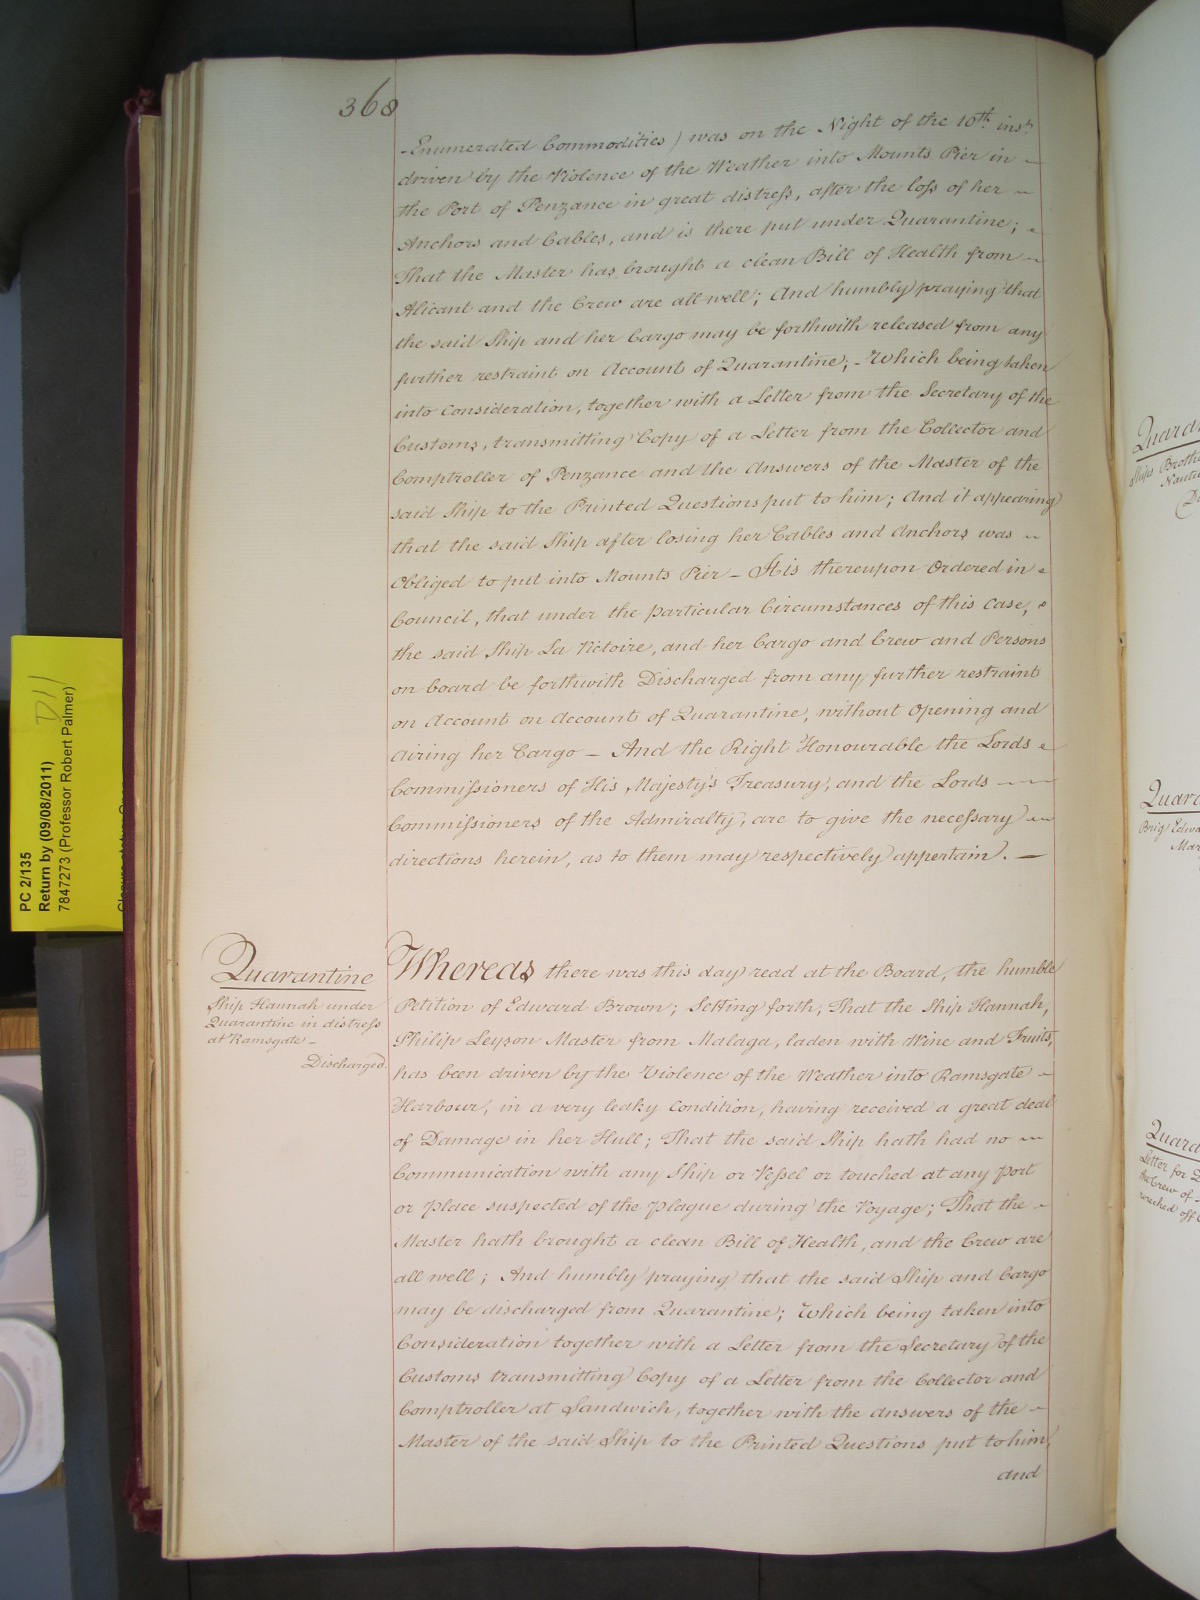 368
-Enumerated Commodities) was on the Night of the 10th inst
driven by the Violence of the Weather into Mounts Pier in
the Port of Penzance in great distress, after the loss of her
Anchors and Cables, and is there put under Quarantine;
That the Master has brought a clean Bill of Health from
Alicant and the Crew are all well; And humbly praying that
the said Ship and her Cargo may be forthwith released from any
further restraint on Account of Quarantine; - Which being taken
into Consideration, together with a Letter from the Secretary of the
Customs, transmitting Copy of a Letter from the Collector and
Comptroller of Penzance and the Answers of the Master of the
said Ship to the Printed Questions put to him; And it appearing
that the said Ship after losing her Cables and Anchors was
Obliged to put into Mounts Pier - It is thereupon Ordered in
Council, that under the particular Circumstances of this Case,
the said Ship La Victoire, and her Cargo and Crew and Persons
on board be forthwith Discharged from any further restraint
on Account on Account of Quarantine, without Opening and
Airing her Cargo - And the Right Honourable the Lords
Commissioners of His Majesty's Treasury, and the Lords
Commissioners of the Admiralty, are to give the necessary
directions herein, as to them may respectively appertain. -
Quarantine
Ship Hannah under
Quarantine in distress
at Ramsgate -
Discharged.
Whereas there was this day read at the Board, the humble
Petition of Edward Brown; Setting forth, That the Ship Hannah,
Philip Leyson Master from Malaga, laden with Wine and Fruits,
has been driven by the Violence of the Weather into Ramsgate
Harbour, in a very leaky Condition, having received a great deal
of Damage in her Hull; That the said Ship hath had no
Communication with any Ship or Vessel or touched at any Port
or Place suspected of the Plague during the Voyage; That the
Master hath brought a clean Bill of Health, and the Crew are
all well; And humbly praying that the said Ship and Cargo
may be discharged from Quarantine; Which being taken into
Consideration together with a Letter from the Secretary of the
Customs transmitting Copy of a Letter from the Collector and
Comptroller at Sandwich, together with the Answers of the
Master of the said Ship to the Printed Questions put to him,
and
PC 2/135
Return by (09/08/2011)
7847273 (Professor Robert Palmer)
D11
Ships
Brig
Letter for
the Crew of
wrecked off